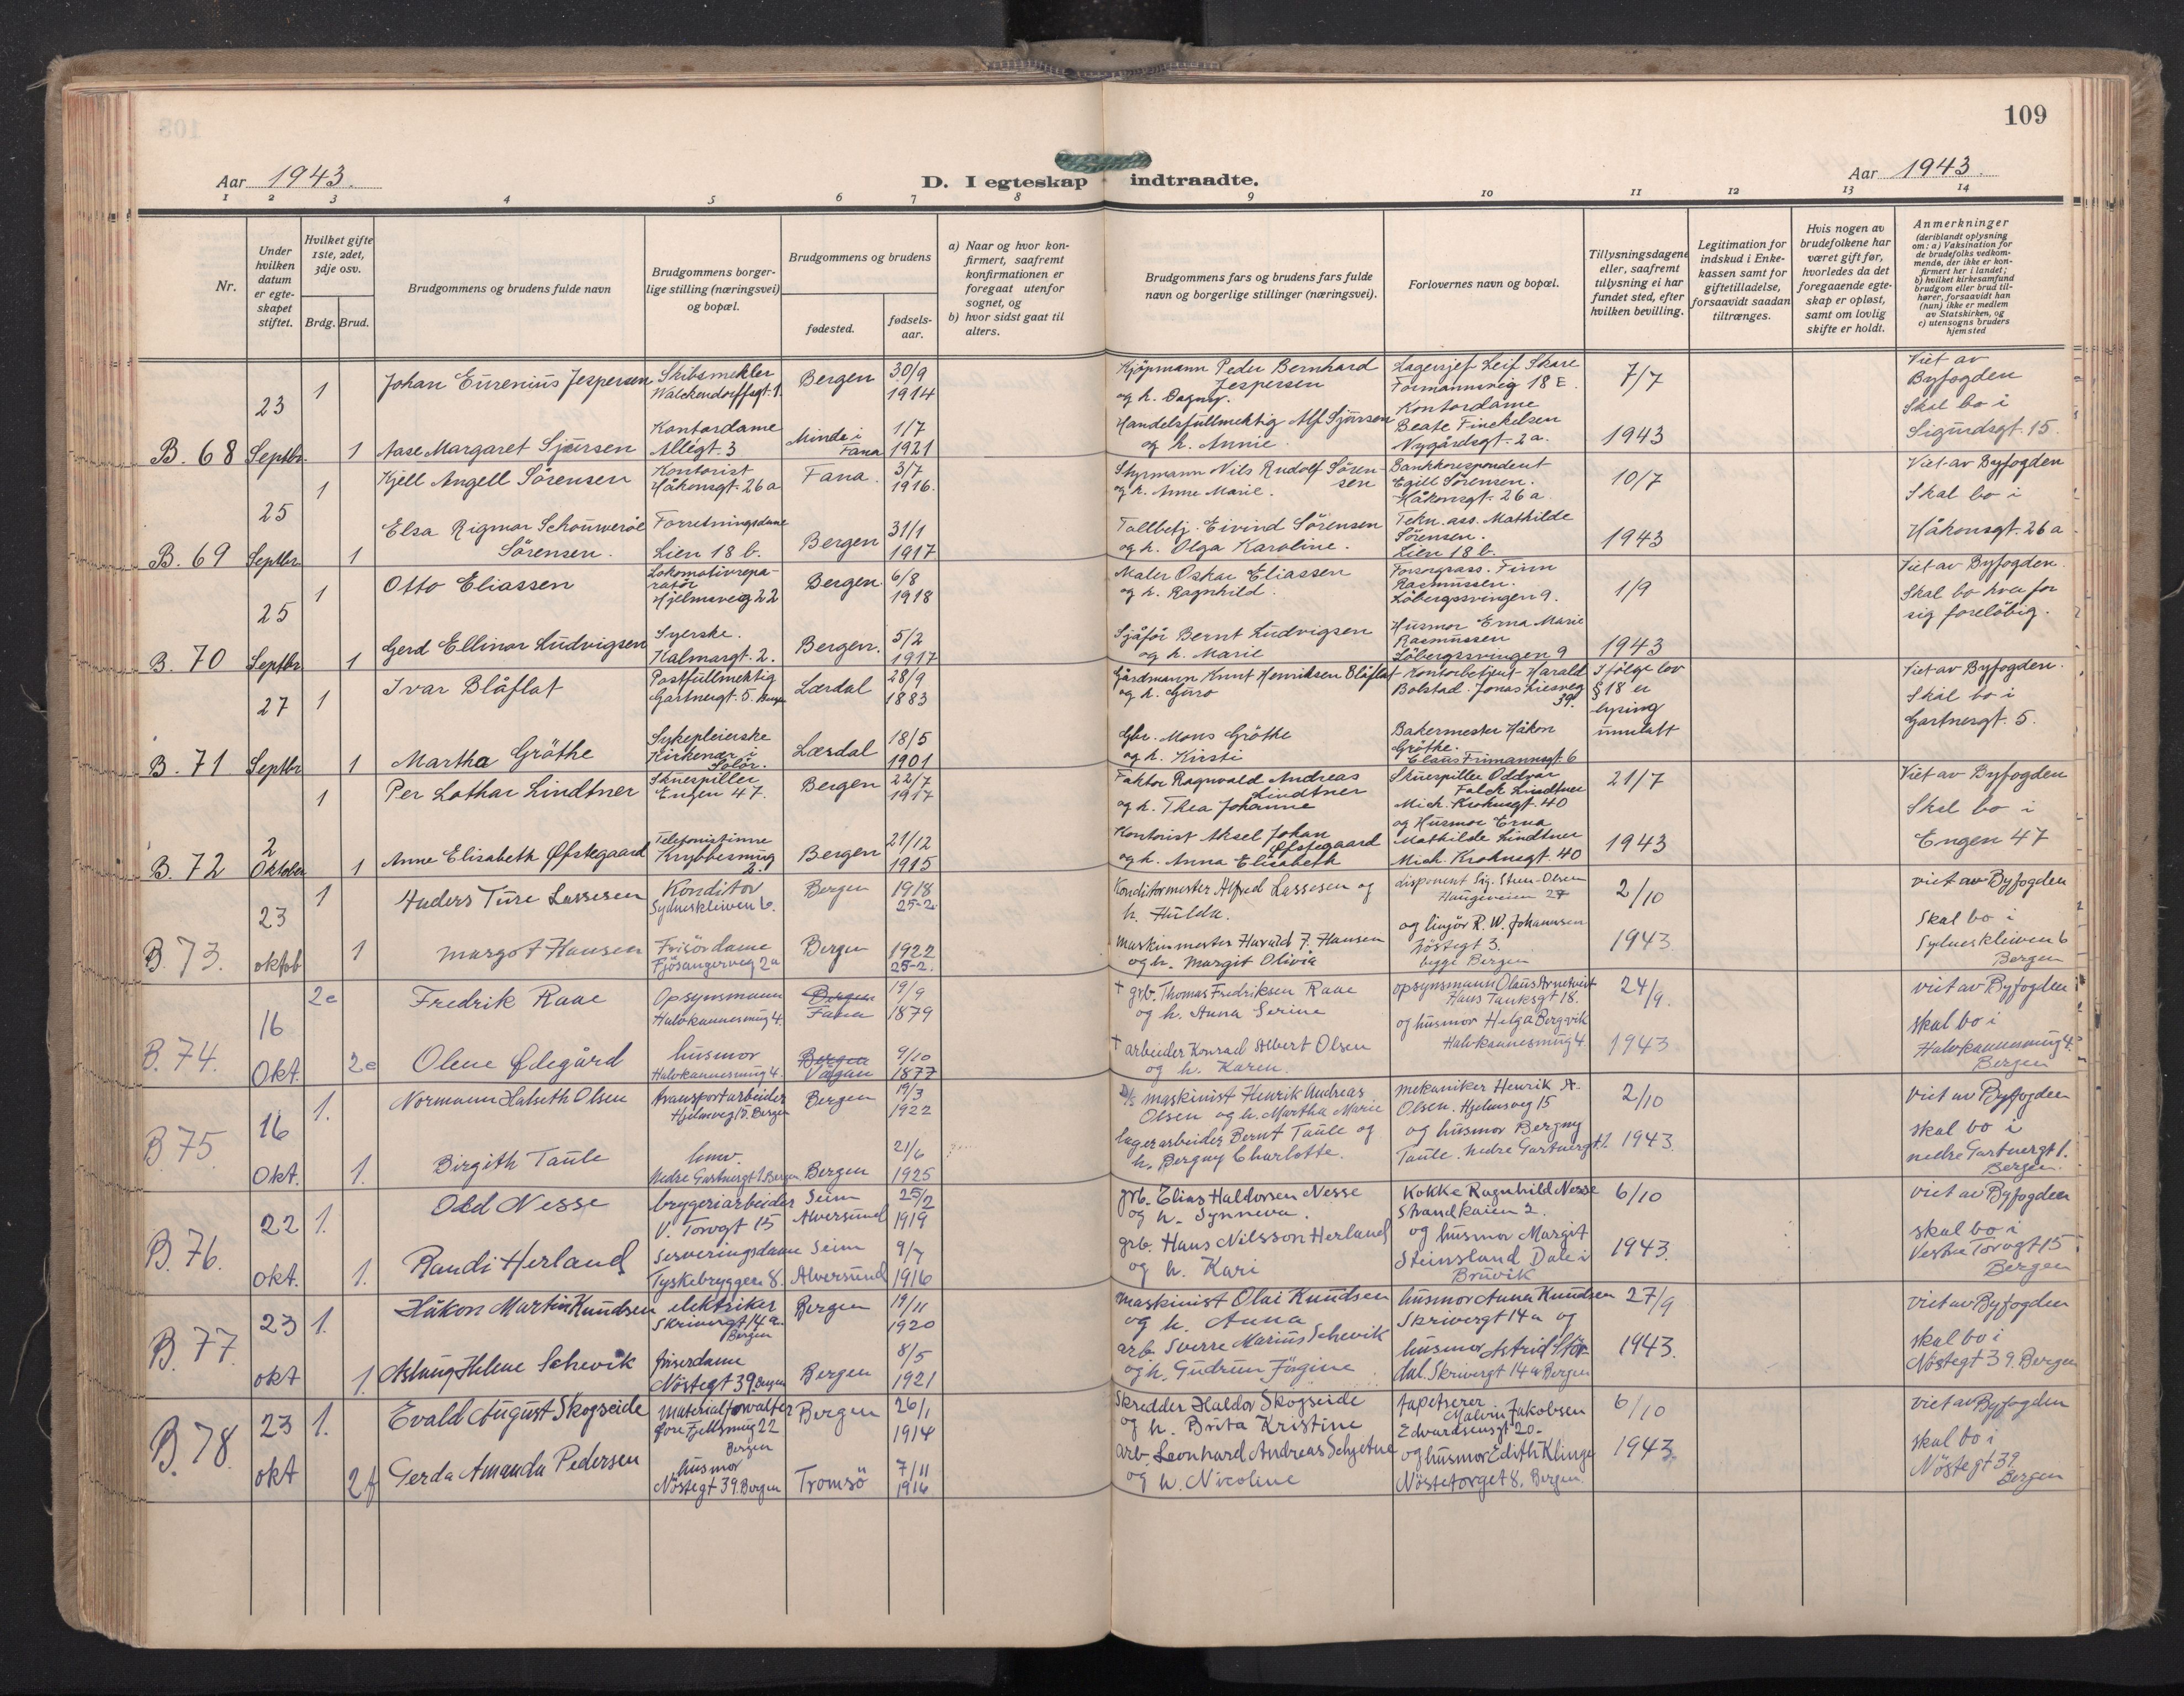 109
Aar 1943.
D. I egteskap indtraadte.
Aar 1943.
1 2 3 4 5 6 7 8 9 10 11 12 13 14
Nr.
Under hvilken datum er egteskapet stiftet.
Hvilket gifte 1ste, 2det, 3dje osv.
Brdg. Brud.
Brudgommens og brudens fulde navn
Brudgommens borgerlige stilling (næringsvei) og bopæl.
Brudgommens og brudens
fødested.
fødselsaar.
a) Naar og hvor konfirmert, saafremt konfirmationen er foregaat utenfor sognet, og
b) hvor sidst gaat til alters.
Brudgommens fars og brudens fars fulde navn og borgerlige stillinger (næringsvei).
Forlovernes navn og bopæl.
Tillysningsdagene eller, saafremt tillysning ei har fundet sted, efter hvilken bevilling.
Legitimation for indskud i Enkekassen samt for giftetilladelse, forsaavidt saadan tiltrænges.
Hvis nogen av brudefolkene har været gift før, hvorledes da det foregaaende egteskap er opløst, samt om lovlig skifte er holdt.
Anmerkninger
(deriblandt oplysning om: a) Vaksination for de brudefolks vedkommende, der ikke er konfirmert her i landet; b) hvilket kirkesamfund brudgom eller brud tilhører, forsaavidt han (hun) ikke er medlem av Statskirken, og c) utensogns bruders hjemsted
B. 68
23
Septbr.
1
Johan Eurenius Jespersen
Skibsmekler
Walckendorffsgt. 1.
Bergen
30/9
1914
Kjøpmann Peder Bernhard
Jespersen
og h. Dagny.
Lagersjef Leif Skare
Formannsveig 18 E.
7/7
Viet av
Byfogden
1
Aase Margaret Sjursen
Kontordame
Allégt. 3
Minde i
Fana
1/7
1921
Handelsfullmektig Alf Sjursen
og h. Annie.
Kontordame
Beate Finckelsen
Nygårdsgt. 2 a.
1943
Skal bo i
Sigurdsgt. 15.
B. 69
25
Septbr.
1
Kjell Angell Sörensen
Kontorist
Håkonsgt. 26 a
Fana.
3/7
1916.
Styrmann Nils Rudolf Sörensen
og h. Anne Marie.
Bankkorespondent
Egill Sörensen.
Håkonsgt. 26 a
10/7
Viet av Byfogden
Skal bo i
1
Elsa Rigmor
Sörensen.
Forretningsdame
Lien 18 b.
Bergen
31/1
1917
Tollbetj. Eivind Sörensen
og h. Olga Karoline.
Tekn. ass. Mathilde
Sörensen.
Lien 18 b.
1943
Håkonsgt. 26 a
B. 70
25
Septbr
1
Otto Eliassen
Lokomotivreparatör
Hjelmsveg 22
Bergen.
6/8
1918
Maler Oskar Eliassen
og h. Ragnhild.
Forsorgsass. Finn
Rasmussen.
Löbergssvingen 9.
1/9
Viet av Byfogden.
Skal bo hver for
sig foreløbig.
1
Gerd Ellinor Ludvigsen
Syerske.
Kalmargt. 2.
Bergen.
5/2
1917
Sjåför Bernt Ludvigsen
og h. Marie
Husmor Erna Marie
Rasmussen
Löbergssvingen 9
1943
B. 71
27
Septbr
1
Ivar Blåflat
Postfullmektig
Gartnergt. 5.
Lærdal
28/9
1883
Gårdmann Knut Henriksen Blåflat
og h. Guro
Kontorbetjent Harald
Bolstad. Jonas Liesveg
39.
I følge lov
§ 18 er
lysing
unnlatt
Viet av Byfogden.
Skal bo i
Gartnergt. 5.
1
Martha Gröthe
Sykepleierske
Kirkenær i
Solör.
Lærdal
18/5
1901
Gbr. Mons Gröthe
og h. Kirsti
Bakermester Håkon
Gröthe.
Claus Frimannsgt. 6
B. 72
2
Oktober
1
Per Lothar Lindtner
Skuespiller
Engen 47.
Bergen
22/7
1917
Faktor Ragnvald Andreas
Lindtner
og h. Thea Johanne
Skuespiller Oddvar
Falck Lindtner
Mich. Krohnsgt. 40
21/7
Viet av Byfogden
Skal bo i
Engen 47
1
Anne Elisabeth Øfstegaard
Telefonistinne
Krybbesmug
2.
Bergen
21/12
1915
Kontorist Aksel Johan
Øfstegaard
og h. Anna Elisabeth
og Husmor Erna
Mathilde Lindtner
Mich. Krohnsgt. 40
1943
B. 73.
23
oktob
1
Anders Ture Lassesen
Konditor
Sydneskleiven 6.
Bergen
1918
25-2
Konditormester Alfred Lassesen og
h. Hulda.
disponent Sig. Steen-Olsen
Haugeveien 27
2/10
viet av Byfogden
Skal bo i
Sydneskleiven 6
Bergen
1
Margot Hansen
Frisördame
Fjösangerveg 2a
Bergen
1922
25-2.
Maskinmester Harald J. Hansen
og h. Margit Olivia
og R. W. Johannsen
3.
begge Bergen
1943
B. 74.
16
Okt.
2e
Fredrik Raae
Opsynsmann
Halvkannesmug 4.
Bergen
Fana
19/9
1879
+ grb. Thomas Fredriksen Raae
og h. Anna Serine
opsynsmann Olaus Arnetveit
Hans Tanksgt 18.
24/9.
viet av Byfogden
skal bo i
Halvkannesmug 4.
Bergen
2e
Olene Ødegård
husmor
Halvkannesmug 4.
Bergen
Vågan
9/10
1877
+ arbeider Konrad Albert Olsen
og h. Karen.
og husmor Helga Bergvik
Halvkannesmug 4.
1943
B. 75.
16
Okt.
1.
Normann Halseth Olsen
transportarbeider
Hjelmsveg 15. Bergen
Bergen
19/3
1922
maskinist Henrik Andreas
Olsen og h. Martha Marie
mekaniker Henrik A.
Olsen. Hjelmsveg 15
2/10
viet av Byfogden
skal bo i
nedre Gartnergt 1.
Bergen.
1.
Birgith Taule
hmv.
Nedre Gartnergt 1. Bergen
Bergen
21/6
1925
lagerarbeider Bernt Taule og
h. Bergny Charlotte.
og husmor Bergny
Taule. nedre Gartnergt 1
1943.
B. 76.
22
okt.
1.
Odd Nesse
bryggeriarbeider
V. Torvgt 15
Seim
Alversund
25/2
1919
grb. Elias Haldorsen Nesse
og h. Synneva.
Kokke Ragnhild Nesse
Strandkaien 2.
6/10
viet av Byfogden
skal bo i
Vestre Torvgt 15
Bergen
1.
Randi Herland
Serveringsdame
Tyskebryggen 8.
Seim
Alversund
9/7
1916
grb. Hans Nilsson Herland
og h. Kari
og husmor Margit
Steinsland Dale i
Bruvik
1943.
B. 77.
23
okt
1.
Håkon Martin Knudsen
elektriker
Skrivergt 14 a.
Bergen
Bergen
19/11
1920
Maskinist Olai Knudsen
og h. Anna
husmor Anna Knudsen
Skrivergt 14 a og
27/9
viet av Byfogden
skal bo i
Nöstegt 39. Bergen
1.
Aslaug Helene Schevik
friserdame
Nöstegt 39. Bergen
Bergen
8/5
1921
arb. Sverre Marius Schevik
og h. Gudrun Jörgine
husmor Astrid Stördal.
Skrivergt 14 a Bergen
1943.
B. 78.
23
okt
1.
Evald August Skogseide
Materialforvalter
Øvre Fjellsmug 22
Bergen
Bergen
26/1
1914
Skredder Haldor Skogseide
og h. Brita Kristine
tapetserer
Malvin Jakobsen
Edvardsensgt 20.
6/10
viet av Byfogden
skal bo i
Nöstegt 39.
Bergen
2f
Gerda Amanda Pedersen
husmor
Nöstegt 39. Bergen
Tromsö
7/11
1916
arb. Leonhard Andreas Schjetne
og h. Nicoline
og husmor Edith Klinge
Nöstetorget 8. Bergen.
1943.